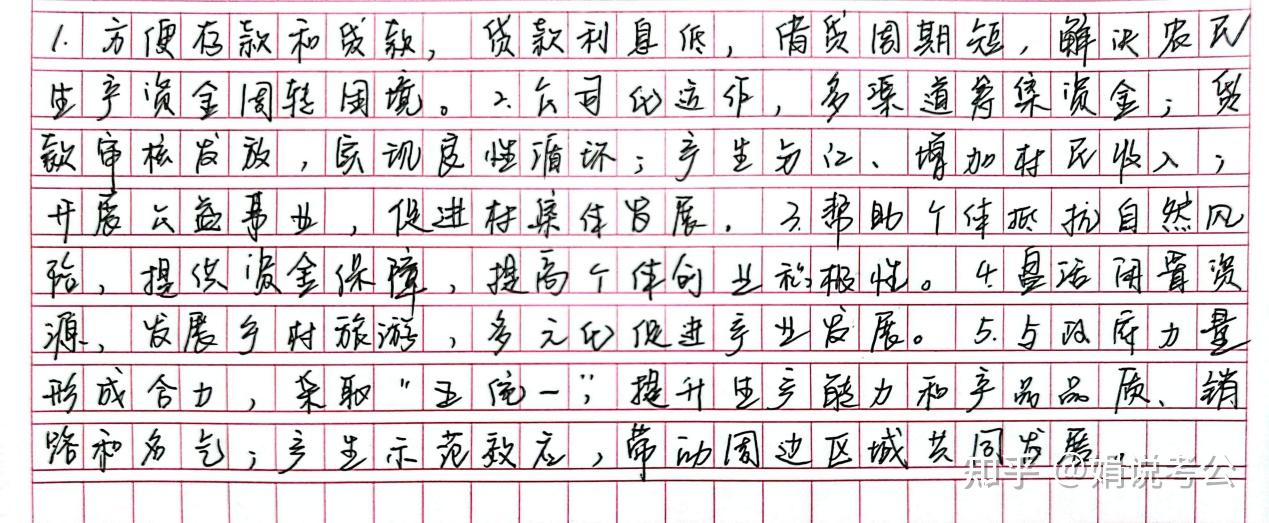 1. 方便存款和贷款，贷款利息低，借贷周期短，解决农民
生产资金周转困境。2.公司化运作，多渠道筹集资金；贷
款审核发放，实现良性循环；产生分红、增加村民收入；
开展公益事业，促进村集体发展。3.帮助个体抵抗自然风
险，提供资金保障，提高个体创业积极性。4.盘活闲置资
源，发展乡村旅游，多元化促进产业发展。5.与政府力量
形成合力，采取“五统一”；提升生产能力和产品品质、销
路和名气；产生示范效应，带动周边区域共同发展。
知乎 @娟说考公